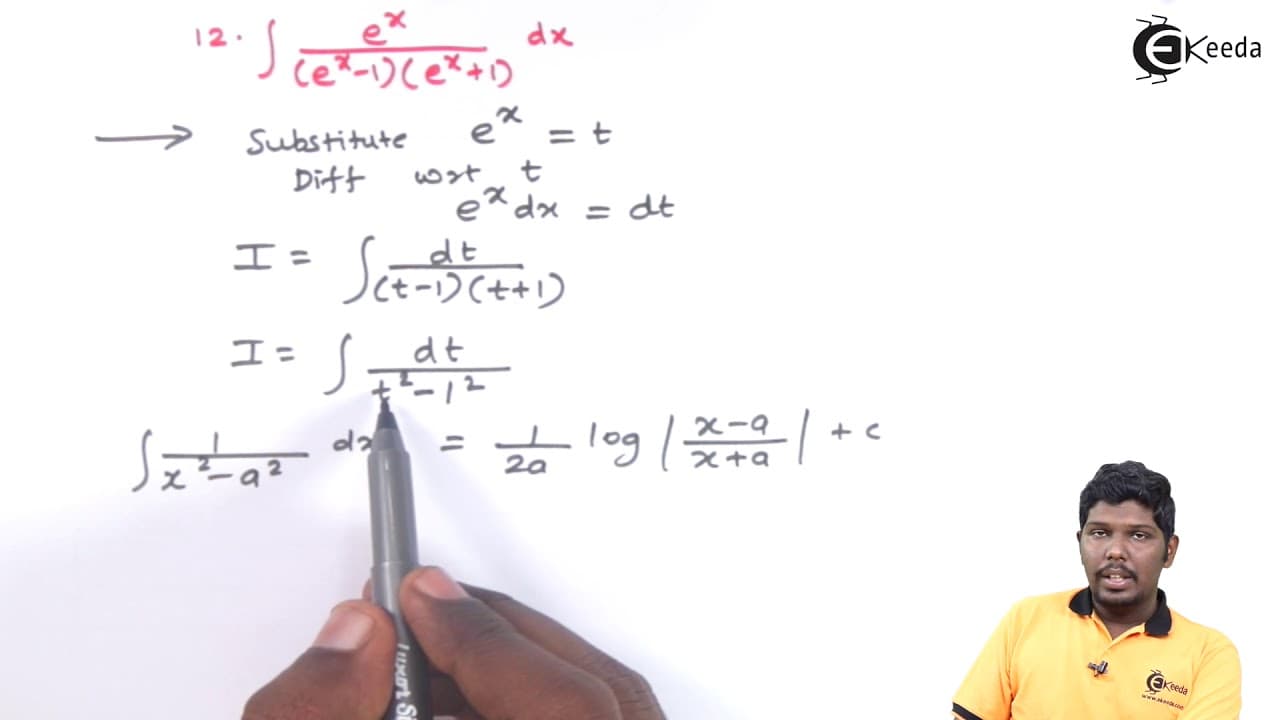 12. ∫ e^x / (e^x-1)(e^x+1) dx
EKeeda
→ Substitute e^x = t
Diff wrt t
e^x dx = dt
I = ∫ dt / (t-1)(t+1)
I = ∫ dt / t²-1²
∫ 1 / x²-a² dx = 1/2a log |x-a / x+a| + c
EKeeda